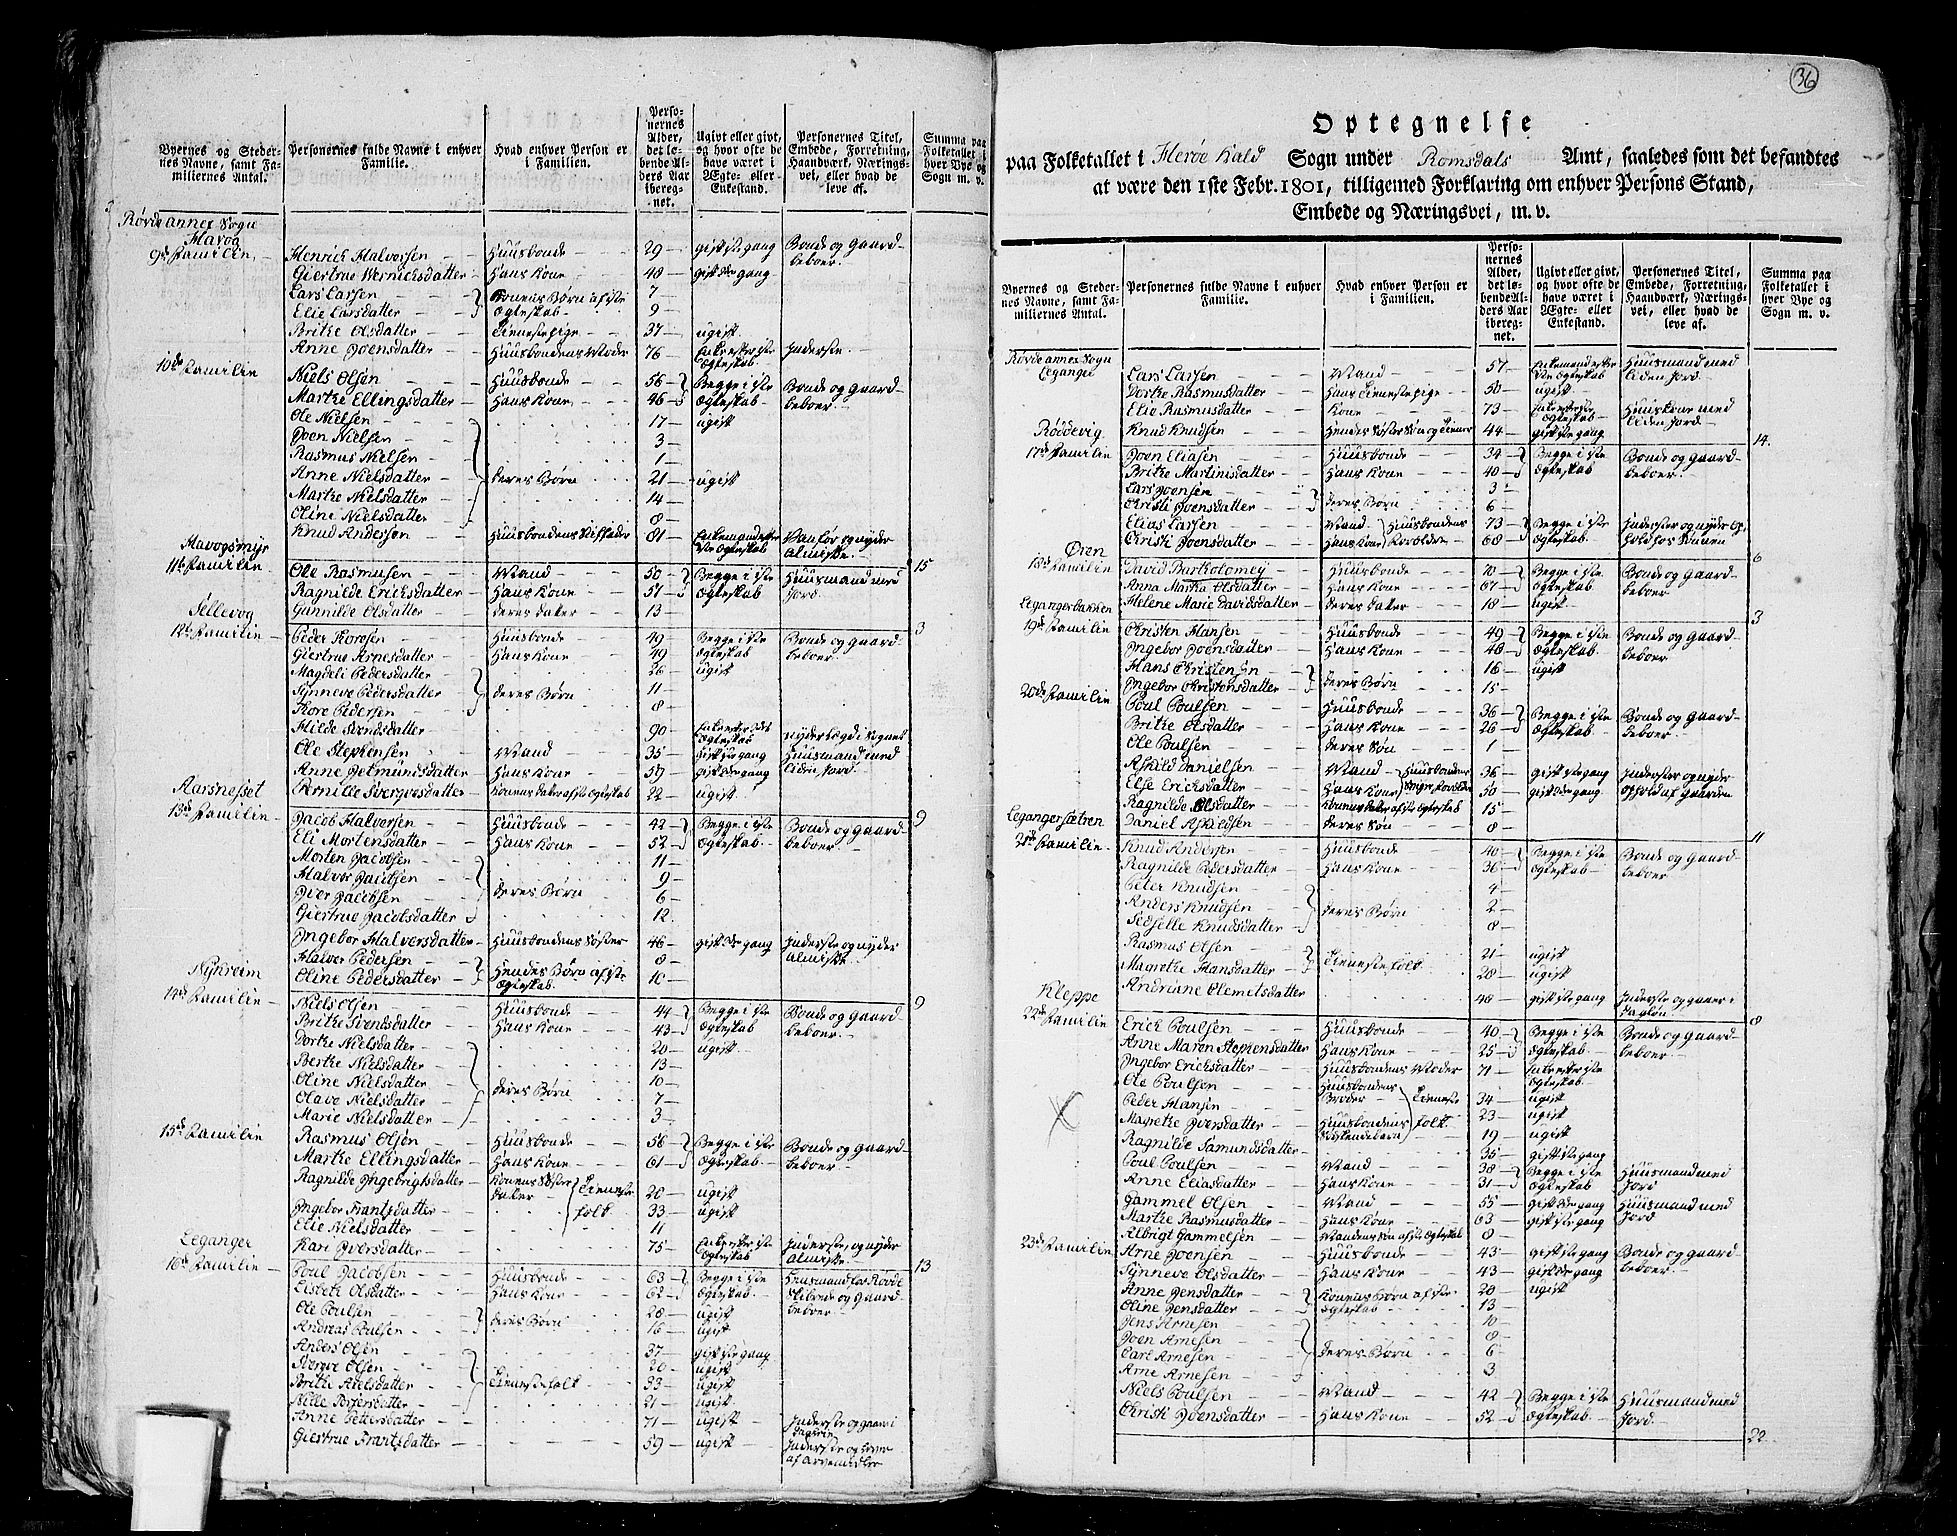 Byernes og Steder-
nes Navne, samt Fa-
miliernes Antal.
Personernes fulde Navne i enhver
Familie.
Hvad enhver Person er
i Familien.
Perso-
nernes
Alder,
det lø-
bende Al-
ders Aar
ibereg-
net.
Ugivt eller givt,
og hvor ofte de
have været i
Ægte- eller
Enkestand.
Personernes Titel,
Embede, Forretning,
Haandværk, Nærings-
vei, eller hvad de
leve af.
Summa paa
Folketallet i
hver Bye og
Sogn m. v.
Røvde annex Sogn
Havog
9de Familie
Henrich Halvorsen Huusbonde 29 gift 1ste gang Bonde og Gaard-
beboer.
Giertrue Wernichsdatter Hans Kone 48 gift 2de gang
Lars Larsen Konens Børn af 1ste 7
Elie Larsdatter Ægteskab 9
Brithe Olsdatter Tieneste pige 37 ugift
Anne Joensdatter Huusbondens Moder 76 Enke efter 1ste Inderste
Ægteskab
10de Familie
Niels Olsen Huusbonde 56 Begge i 1ste Bonde og Gaard-
Marthe Ellingsdatter Hans Kone 46 Ægteskab beboer
Ole Nielsen 17 ugift
Joen Nielsen 3
Rasmus Nielsen 1
Anne Nielsdatter deres Børn 21 ugift
Marthe Nielsdatter 14
Oline Nielsdatter 8
Knud Andersen Huusbondens Stiffader 81 Enkemand efter Vanfør og nyder
2de Ægteskab almisse
Havogsmyr 15
11te Familie
Ole Rasmusen Mand 50 Begge i 1ste Huusmand med
Ragnilde Erichsdatter Hans Kone 57 Ægteskab Jord
Gunnilde Olsdatter deres Dater 13
Sellevog 3
12te Familie
Peder Thoresen Huusbonde 49 Begge i 1ste Bonde og Gaard-
Giertrue Arnesdatter Hans Kone 49 Ægteskab beboer
Magdeli Pedersdatter 26 ugift
Synneve Pedersdatter deres Børn 11
Thore Pedersen 8
Hilde Svendsdatter 90 nyder Lægd i Sognet
Ole Stephensen Mand 35 gift 1ste gang Huusmand med
Anne Jetmundsdatter Hans Kone 59 gift 2de gang liden Jord
Pernille Sverivesdatter Konens Dater af 1ste Ægteskab 22 ugift
Aarsnesset 9
13de Familie
Jacob Halversen Huusbonde 42 Begge i 1ste Bonde og Gaard-
Eli Mortensdatter Hans Kone 52 Ægteskab beboer
Morten Jacobsen 11
Halvor Jacobsen 9
Iver Jacobsen deres Børn 6
Giertrue Jacobsdatter 12
Ingebor Halversdatter Huusbondens Søster 46 gift 2de gang Inderste og nyder
Halver Pedersen Hendes Børn af 1ste 8 almisse
Oline Pedersdatter Ægteskab 10
Nykreim 9
14de Familie
Niels Olsen Huusbonde 44 Begge i 1ste Bonde og Gaard-
Brithe Svendsdatter Hans Kone 43 Ægteskab beboer
Dorthe Nielsdatter 20 ugift
Berthe Nielsdatter 13
Oline Nielsdatter deres Børn 10
Olave Nielsdatter 7
Marie Nielsdatter 3
15de Familie
Rasmus Olsen Huusbonde 56 Begge i 1ste Bonde og Gaard-
Marthe Ellingsdatter Hans Kone 61 Ægteskab beboer
Ragnilde Ingebrigtsdatter Konens Søster Tieneste 20 ugift
Dater
Ingebor Frantsdatter folk 33 ugift
Elie Nielsdatter 11
Kari Iversdatter 75 Enke efter 1ste Inderste, og nyder
Ægteskab almisse
Leganger 13
16de Familie
Poul Jacobsen Huusbonde 63 Begge i 1ste
Lisbeth Olsdatter Hans Kone 62 Ægteskab og Gaard-
Ole Poulsen deres Børn 28 ugift beboer
Andreas Poulsen 16 ugift
Anders Olsen 37 gift 1ste gang
Sverive Olsen 20 ugift
Brithe Axelsdatter Tieneste folk 33 ugift
Nille 21 ugift
Anne Pettersdatter 71 ugift Inderste og gaar i
Dagløn
Giertrue Frantsdatter 59 ugift Inderste og lever
af Arvemidler
36
Optegnelse
paa Folketallet i Herøe Kald Sogn under Romsdals Amt, saaledes som det befandtes
at være den 1ste Febr. 1801, tilligemed Forklaring om enhver Persons Stand,
Embede og Næringsvei, m. v.
Byernes og Steder-
nes Navne, samt Fa-
miliernes Antal.
Personernes fulde Navne i enhver
Familie.
Hvad enhver Person er
i Familien.
Perso-
nernes
Alder,
det lø-
bende Al-
ders Aar
ibereg-
net.
Ugivt eller givt,
og hvor ofte de
have været i
Ægte- eller
Enkestand.
Personernes Titel,
Embede, Forretning,
Haandværk, Nærings-
vei, eller hvad de
leve af.
Summa paa
Folketallet i
hver Bye og
Sogn m. v.
Røvde annex Sogn
Leganger
Lars Larsen Mand 57 Enkemand efter Huusmand med
2de Ægteskab liden Jord
Dorthe Rasmusdatter Hans Tieneste pige 50 ugift
Elie Rasmusdatter Kone 73 Enke efter Huuskone med
Ægteskab liden Jord
Knud Knudsen Hendes Søster Søn og Tiener 44 gift 1ste gang
Røddevig 14
17de Familie
Joen Eliasen Huusbonde 34 Begge i 1ste Bonde og Gaard-
Brithe Martinisdatter Hans Kone 40 Ægteskab beboer
Lars Joensen deres Børn 3
Christi Joensdatter 6
Elias Larsen Mand Huusbondens 73 Begge i 1ste Inderster og nyder Op-
Christi Joensdatter Hans Kone Forældre 68 Ægteskab hold for Sønnen
Øren 6
18de Familie
David Bartholomey Huusbonde 70 Begge i 1ste Bonde og Gaard-
Anna Martha Olsdatter Hans Kone 67 Ægteskab beboer
Helene Marie Davidsdatter deres Dater 18 ugift
Legangerbakken 3
19de Familie
Christen Hansen Huusbonde 49 Begge i 1ste Bonde og Gaard-
Ingebor Joensdatter Hans Kone 48 Ægteskab beboer
Hans Christensen deres Børn 16 ugift
Ingebor Christensdatter 15
20de Familie
Poul Poulsen Huusbonde 36 Begge i 1ste Bonde og Gaard-
Brithe Olsdatter Hans Kone 26 Ægteskab beboer
Ole Poulsen deres Søn 1
Askild Danielsen Mand Huusbondens 36 gift 1ste gang Inderster og nyder
Else Erichsdatter Hans Kone 50 gift 2de gang Ophold af Gaarden
Ragnilde Olsdatter Konens Dater af 1ste Ægteskab 15
Daniel Askildsen deres Søn 8
Legangersætren 11
21de Familie
Knud Andersen Huusbonde 40 Begge i 1ste Bonde og Gaard-
Ragnilde Pedersdatter Hans Kone 36 Ægteskab beboer
Peter Knudsen 4
Anders Knudsen deres Børn 2
Sidselle Knudsdatter 8
Rasmus Olsen Tieneste folk 21 ugift
Magrethe Hansdatter 28 ugift
Andriane Clemetsdatter 48 gift 1ste gang Inderste og gaaer i
Dagløn
Kleppe 8
22de Familie
Erich Poulsen Huusbonde 40 Begge i 1ste Bonde og Gaard-
Anne Maren Stephensdatter Hans Kone 25 Ægteskab beboer
Ingebor Erichsdatter Huusbondens Moder 71 Enke efter 1ste
Ægteskab
Ole Poulsen Huusbondens Broder Tieneste 34 ugift
Peder Hansen 23 ugift
Magrethe Iversdatter Huusbondens Sødskendebarn folk 19 ugift
Ragnilde Samundsdatter 35 gift 1ste gang
Poul Poulsen Mand 38 Begge i 1ste Huusmand med
Anne Eliasdatter Hans Kone 31 Ægteskab Jord
Gammel Olsen Mand 55 gift 2de gang Huusmand med
Marthe Rasmusdatter Hans Kone 63 gift 1ste gang Jord
Albrigt Gammelsen Mandens Søn af 1ste Ægteskab 8
23de Familie
Arne Joensen Huusbonde 43 gift 1ste gang Bonde og Gaard-
Synneve Olsdatter Hans Kone 43 gift 2de gang beboer
Anne Jensdatter Konens Børn af 1ste 20 ugift
Oline Jensdatter Ægteskab 13
Jens Arnesen 10
Joen Arnesen 8
Carl Arnesen deres Børn 6
Arne Arnesen 3
Niels Poulsen Mand 42 Begge i 1ste Huusmand med
Christi Joensdatter Hans Kone 52 Ægteskab Jord
22